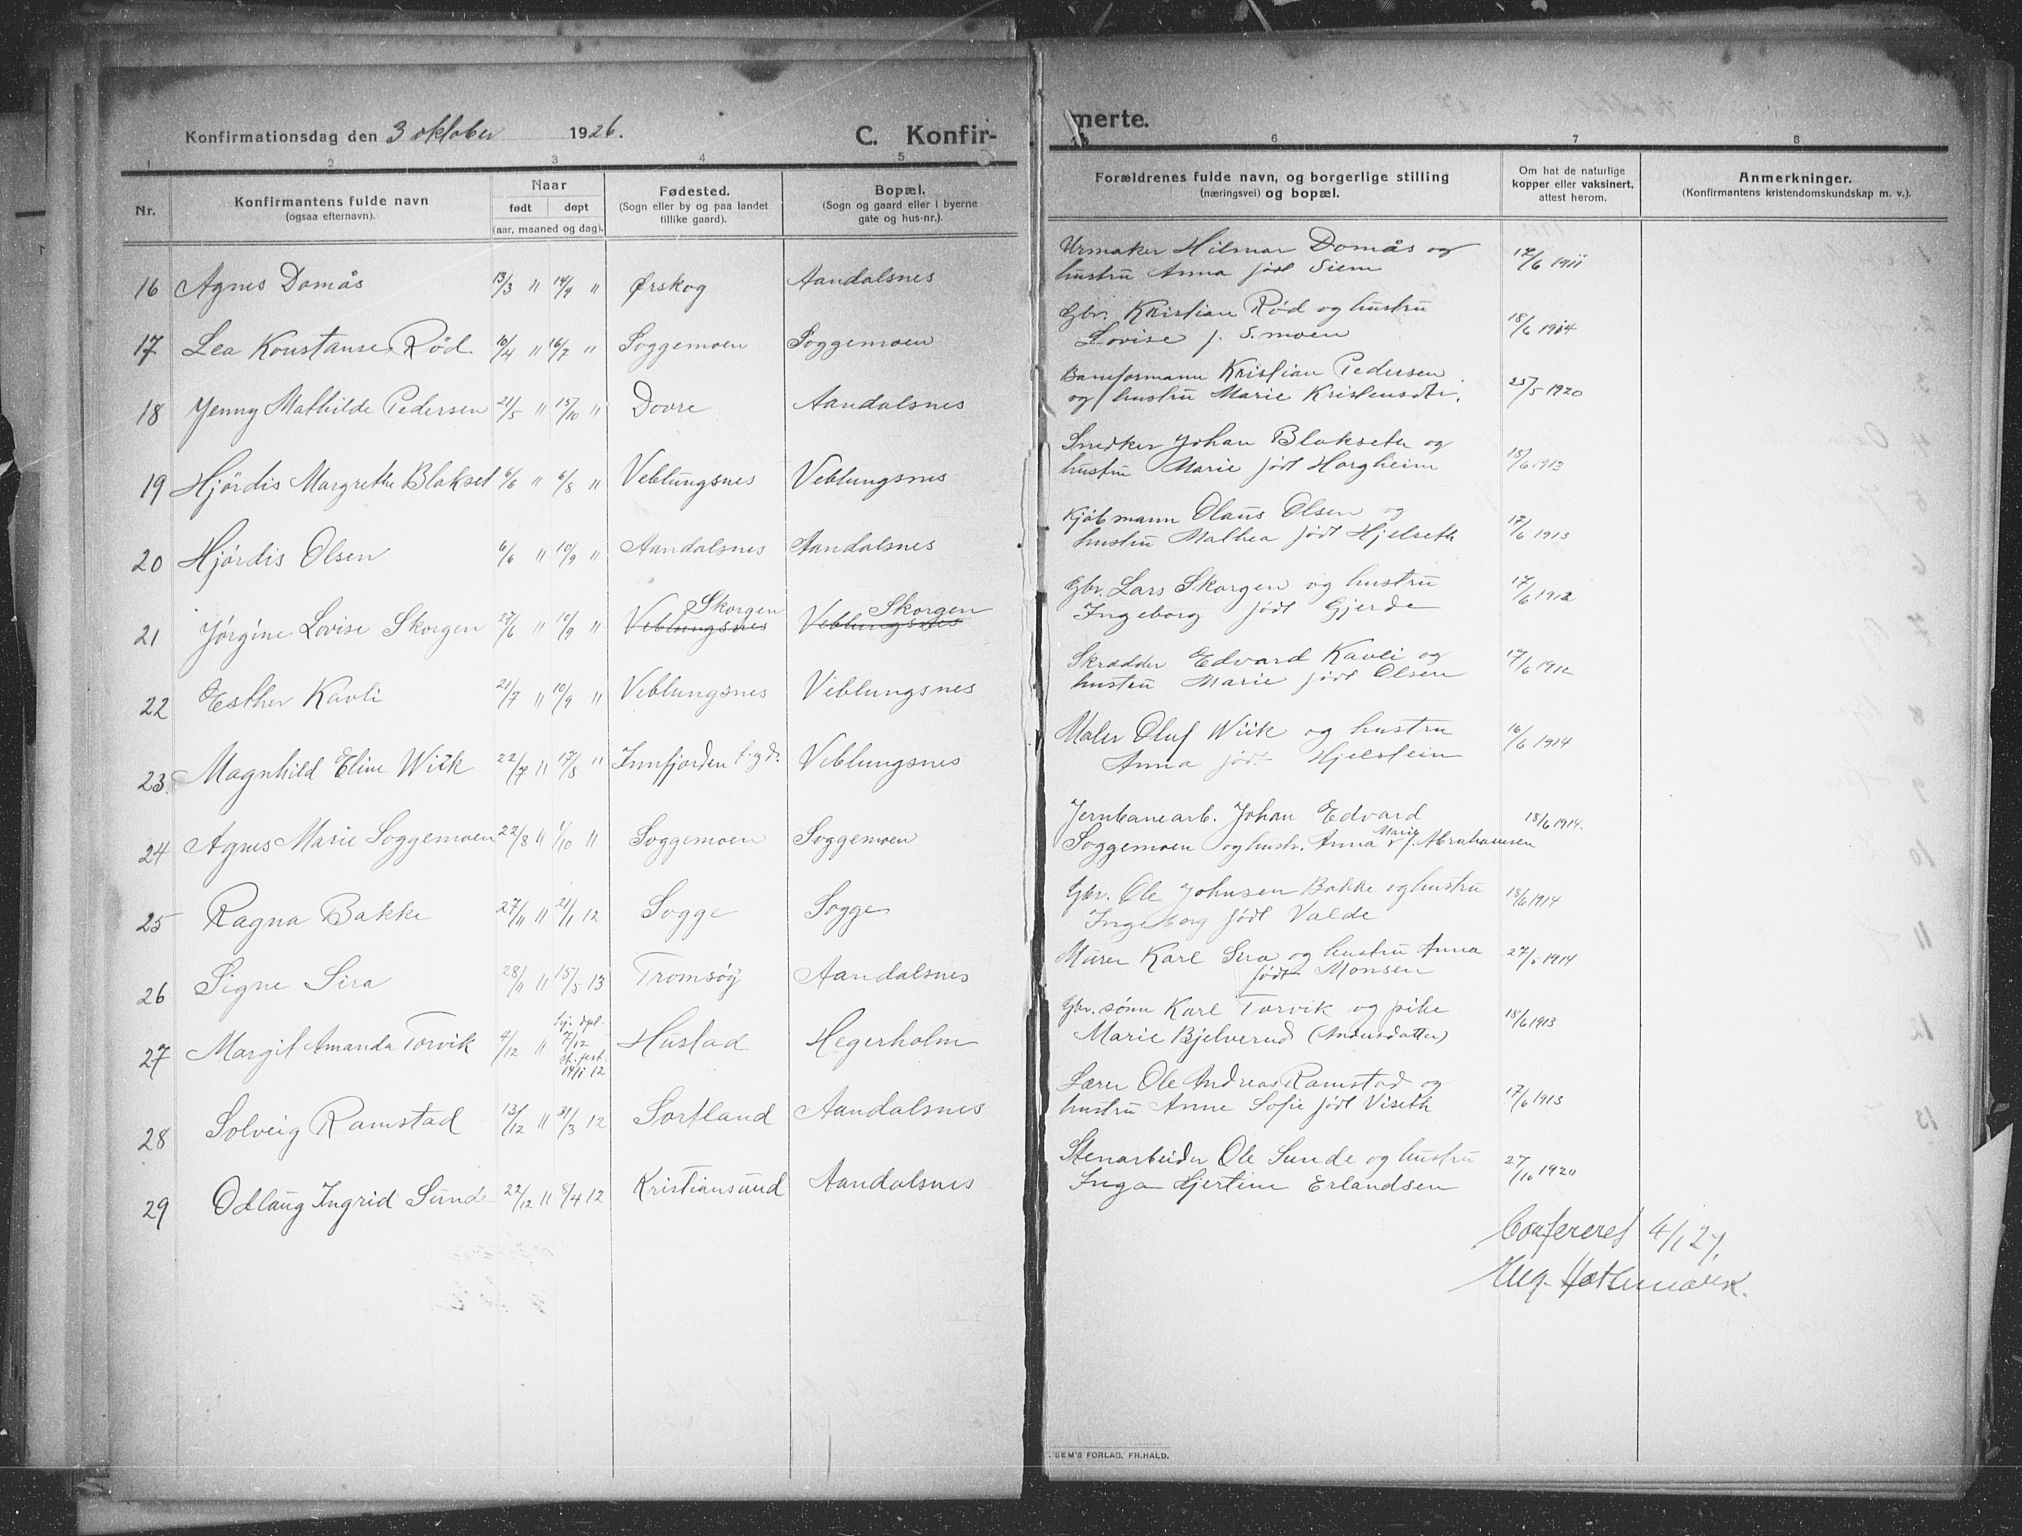 Konfirmationsdag den 3 oktober 1926. C. Konfir-
merte.
1 2 3 4 5
6 7 8
Nr.
Konfirmantens fulde navn
(ogsaa efternavn).
Naar
født døpt
(aar, maaned og dag).
Fødested.
(Sogn eller by og paa landet
tillike gaard).
Bopæl.
(Sogn og gaard eller i byerne
gate og hus-nr.).
Forældrenes fulde navn, og borgerlige stilling
(næringsvei) og bopæl.
Om hat de naturlige
kopper eller vaksinert,
attest herom.
Anmerkninger.
(Konfirmantens kristendomskundskap m. v.).
16 Agnes Domås 13/3 " 14/4 " Ørskog Aandalsnes
Urmaker Hilmar Domås og
hustru Anna født Siem 17/6 1911
17 Lea Konstanse Rød 10/4 " 16/7 " Soggemoen Soggemoen
Gbr. Kristian Rød og hustru
Lovise f. S.moen 18/6 1914
18 Jenny Mathilde Pedersen 21/5 " 15/10 " Dovre Aandalsnes
Baneformann Kristian Pedersen
og hustru Marie Kristensdtr. 25/5 1920
19 Hjørdis Margrethe Blakset 6/6 " 6/8 " Veblungsnes Veblungsnes
Snedker Johan Blakseter og
hustru Marie født Horgheim 18/6 1913
20 Hjørdis Olsen 6/6 " 10/9 " Aandalsnes Aandalsnes
Kjøbmann Olaus Olsen og
hustru Mathea født Hjelseth 17/6 1913
21 Jørgine Lovise Skorgen 27/6 " 10/9 " Skorgen Veblungsnes Skorgen Veblungsnes
Gbr. Lars Skorgen og hustru
Ingeborg født Gjerde 17/6 1912
22 Esther Kavli 21/7 " 10/9 " Veblungsnes Veblungsnes
Skrædder Edvard Kavli og
hustru Marie født Olsen 17/6 1912
23. Magnhild Eline Wiik 22/7 " 17/8 " Innfjorden Veblungsnes
Maler Oluf Wiik og hustru
Anna født Hjelstein 16/6 1914
24 Agnes Marie Soggemoen 22/8 " 1/10 " Soggemoen Soggemoen
Jernbanearb. Johan Edvard
Soggemoen og hustr. Anna Marie f. Abrahamsen 18/6 1914.
25 Ragna Bakke 27/11 " 21/1 12 Sogge Sogge
Gbr. Ole Johnsen Bakke og hustru
Ingeborg født Valde 18/6 1914
26 Signe Sira 28/11 " 15/5 13 Tromsøy Aandalsnes
Murer Karl Sira og hustru Anna
født Monsen 27/5 1914
27 Margit Amanda Torvik 4/12 " hj. dpt. 7/12 st. fest. 14/1 12 Hustad Hegerholm
Gbr. sønn Karl Torvik og pike
Marie Bjelverud (Andersdatter) 18/6 1913
28 Solveig Ramstad 13/12 " 31/3 12 Sortland Aandalsnes
Lærer Ole Andreas Ramstad og
hustru Anne Sofie født Viseth 17/6 1913
29 Odlaug Ingrid Sunde 22/12 " 8/4 12 Kristiansund Aandalsnes
Stenarbeider Ole Sunde og hustru
Inga Hjertine Erlandsen 27/10 1920
Confereret 4/1 27.
SEM'S FORLAG, FR. HALD.